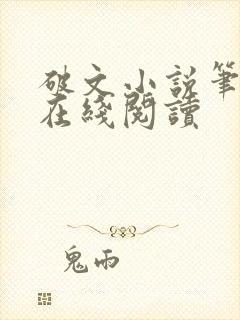 破文小说笔
在綫閱讀
鬼雨